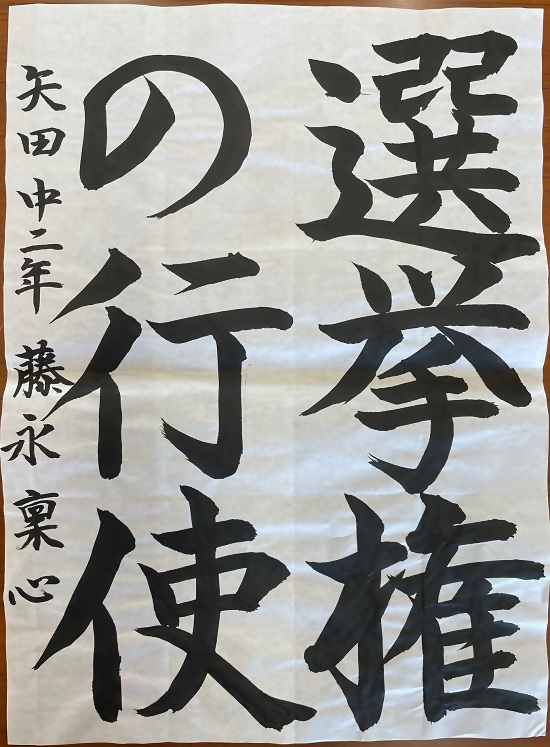 選挙権
の行使
矢田中二年 藤永稟心